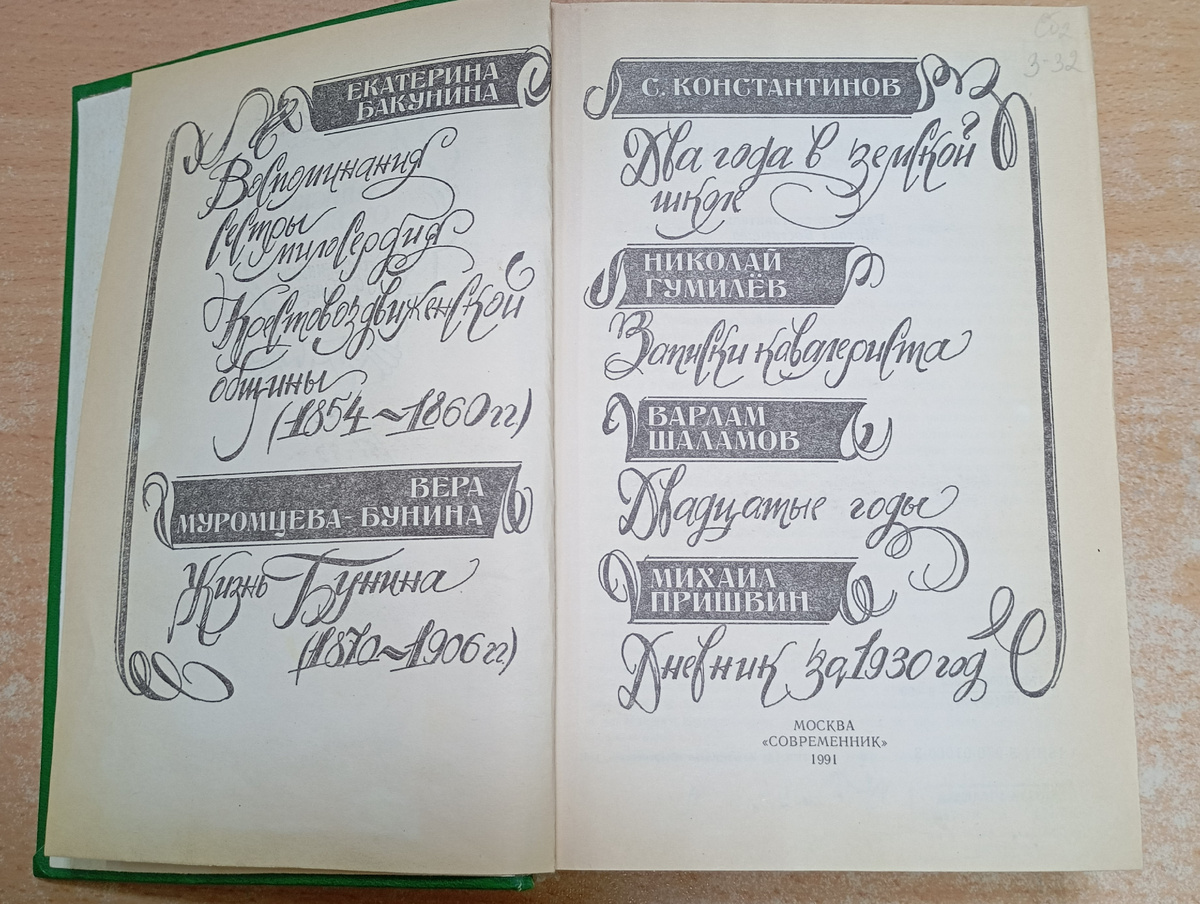 ЕКАТЕРИНА
БАКУНИНА
Воспоминания
сестры
милосердия
Крестовоздвиженской
общины
(1854~1860 гг.)
ВЕРА
МУРОМЦЕВА-БУНИНА
Жизнь Бунина
(1870~1906 гг.)
Сб2
3-32
С. КОНСТАНТИНОВ
Два года в земской
школе
НИКОЛАЙ
ГУМИЛЁВ
Записки кавалериста
ВАРЛАМ
ШАЛАМОВ
Двадцатые годы
МИХАИЛ
ПРИШВИН
Дневник за 1930 год
МОСКВА
«СОВРЕМЕННИК»
1991